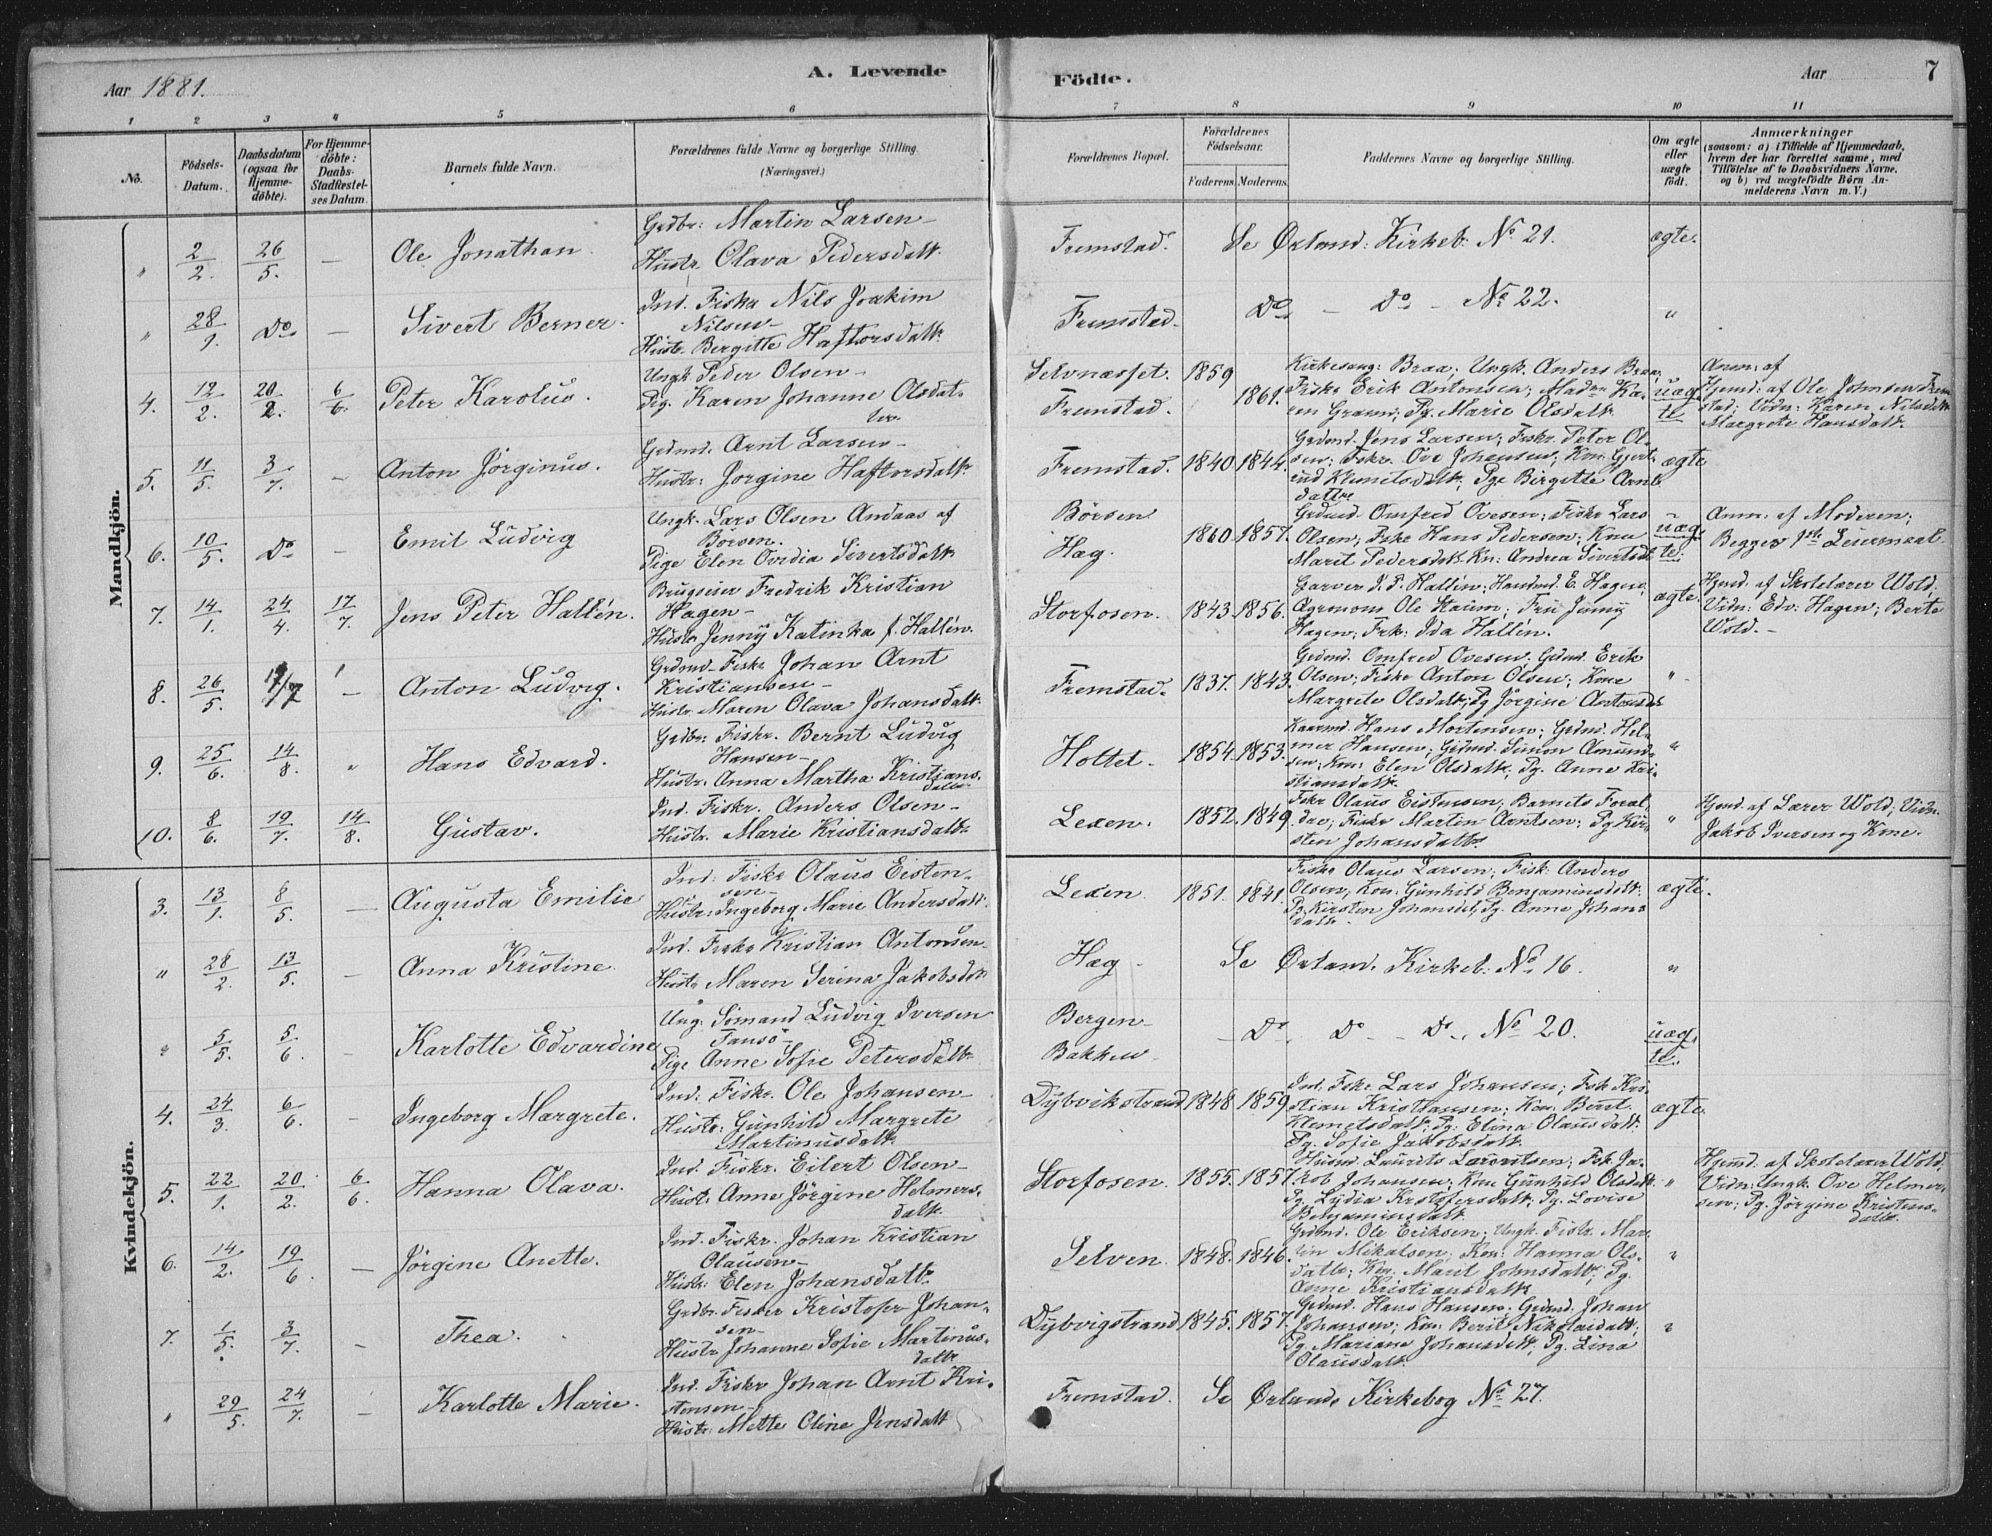 Aar 1881.
A. Levende
Födte.
Aar
7
1 2 3 4 5 6 7 8 9 10 11
No.
Födsels-
Datum.
Daabsdatum
(ogsaa for
Hjemme-
döbte).
For Hjemme-
döbte:
Daabs-
Stadfæstel-
ses Datum.
Barnets fulde Navn.
Forældrenes fulde Navne og borgerlige Stilling.
(Næringsvei.)
Forældrenes Bopæl.
Forældrenes
Födselsaar.
Faderens. Moderens.
Faddernes Navne og borgerlige Stilling.
Om ægte
eller
uægte
født.
Anmærkninger
(saasom: a) i Tilfælde af Hjemmedaab,
hvem der har forrettet samme, med
Tilföielse af to Daabsvidners Navne,
og b) ved uægtefödte Börn An-
melderens Navn m. V.)
Mandkjön.
" 2/2. 26/5. — Ole Jonathan.
Grdbr: Martin Larsen —
Hustr. Olava Pedersdatt.
Fremstad. Se Ørland: Kirkeb: No 21. ægte.
" 28/1. Do — Sivert Berner.
Ind. Fisker Nils Joakim
Nilsen —
Hustr. Bergitte Haftorsdatt.
Fremstad. Do — Do — No 22. "
4. 12/2. 20/2. 6/6. Peter Karolus.
Ungk. Peder Olsen —
Pig. Karen Johanne Olsdat-
ter
Selvnæsset. 1859
Fremstad. 1861.
Kirkesang: Braa; Ungk. Anders Braa;
Fisker Erik Antonsen; Madm Ka-
ren Graam; Pg. Marie Olsdatt.
uæg-
te
Anm: af
Hjemd: af Ole Johnsen Frem-
stad; Vidn: Karen Nilsdatt.
Margrete Hansdatt.
5. 11/5. 3/7. — Anton Jörginus.
Grdmd. Arnt Larsen —
Hustr: Jorgine Haftorsdatt.
Fremstad. 1840. 1844.
Grdmd. Jens Larsen; Fiskr. Peter Ol-
sen; Fiskr. Ove Johansen; Kon: Gjert-
rud Klemetsdatt; Pge Birgitte Arnt-
datter
ægte
6. 10/5. Do — Emil Ludvig
Ungk. Lars Olsen Andaas af
Börsen.
Pige Elen Ovidia Sivertsdatt.
Börsen
Hag. 1860. 1857.
Grdmd. Omfred Ovesen; Fiskr Lars
Olsen; Fiskr Hans Pedersen; Kone
Marit Pedersdatt. Kn: Andrea Sivertsdt.
uæg-
te.
Anm: af Moderen;
Begges 1ste Leiermaal.
7. 14/1. 24/4. 17/7. Jens Peter Hallén.
Brugseier Fredrik Kristian
Hagen —
Hustr. Jenny Katinka f. Hallén.
Storfosen. 1843. 1856.
Garver J. P. Hallén; Handmd E. Hagen;
Agronom Ole Kaum; Fru Jenny
Hagen; Frk: Ida Hallén.
ægte.
Hjemd. af Skolelærer Wold,
Vidn: Edv: Hagen; Berte
Wold. —
8. 26/5. 17/7 — Anton Ludvig.
Grdmd — Fiskr Johan Arnt
Kristiansen —
Hustr. Maren Olava Johansdatt.
Fremstad. 1837. 1843.
Grdmd. Omfred Ovesen; Grdmd. Erik
Olsen; Fiskr Anton Olsen; Kone
Margrete Olsdatt; Pg Jörgine Antonsdt.
"
9. 25/6. 14/8. " Hans Edvard.
Grdbr: Fiskr. Bernt Ludvig
Hansen —
Hustr. Anna Martha Kristians-
datter
Hottet. 1854. 1853.
Kaarmd. Hans Mortensen; Grdmd. Hel-
mer Hansen; Grdmd. Simon Amund-
sen; Kon: Elen Olsdatt; Pg. Anne Kri-
stiansdatt.
"
10. 8/6. 19/7. 14/8. Gustav.
Ind. Fiskr. Anders Olsen —
Hustr. Marie Kristiansdatt.
Lexen. 1852. 1849.
Fskr Olaus Eistensen; Barnets Foræl-
dre; Fiskr Martin Arntsen; Pg Kir-
sten Johansdatt.
"
Hjemd. af Lærer Wold; Vidn.
Jakob Iversen og Kone.
Kvindekjön.
3. 13/1. 8/5. — Augusta Emilie
Ind: Fiskr Olaus Eisten-
sen —
Hustr: Ingeborg Marie Andersdatt.
Lexen 1851. 1841.
Fiskr Olaus Larsen; Fisk: Anders
Olsen; Kon: Gunhild Benjaminsdatt.
Pg Kirsten Johansdt; Pg. Anne Johans-
datt.
ægte.
" 28/2. 13/5. — Anna Kristine.
Ind. Fiskr Kristian Antonsen —
Hustr Maren Serina Jakobsdatt
Hag — Se Ørland. Kirkeb: No 16. "
" 5/5. 5/6. — Karlotte Edvardine
Ung: Sömand Ludvig Iversen
Tansö —
Pige Anne Sofie Petersdatt.
Bergen —
Bakken —
— Do. Do — Do. No 20.
uæg-
te.
4. 24/3. 6/6. — Ingeborg Margrete.
Ind: Fiskr. Ole Johansen —
Hustr: Gunhild Margrete
Martinusdatt.
Dybvikstrand 1848. 1859.
Ind: Fskr. Lars Johansen; Fsk Kri-
stian Kristiansen; Kon: Beret
Klemetsdatt; Pg: Elina Olausdatt.
Pg. Sofie Jakobsdatt.
ægte.
5. 22/1. 20/2. 6/6. Hanna Olava.
Ind. Fiskr. Eilert Olsen —
Hustr: Anne Jörgine Helmers-
datt.
Storfosen. 1855. 1857.
Husmd Laurits Lauritsen; Fsk Ja-
kob Johansen; Kone Gunhild Olsdatt.
Pg. Lydia Kristofersdatt; Pg. Lovise
Benjaminsdatt.
"
Hjemd. af Skolelærer Wold,
Vidn: Ungk. Ove Helmer-
sen; Pg. Jörgine Kristens-
datt.
6. 14/2. 19/6. — Jörgine Anette.
Ind. Fiskr. Johan Kristian
Olausen —
Hustr: Elen Johansdatt.
Selven. 1848. 1846.
Grdmd. Ole Eriksen; Ungk. Fiskr. Mar-
tin Mikalsen; Kon: Hanna Ols-
datter; Kon. Marit Johnsdatt; Pg.
Anne Kristiansdatt.
"
7. 1/5. 3/7. — Thea.
Grdbr. Fisker Kristofer Johan-
sen —
Hustr Johanne Sofie Martinus-
datter
Dybvigstrand 1845. 1857.
Grdmd. Hans Hansen; Grdmd. Johan
Johansen; Kon: Berit Nikolaidatt;
Pg. Mariane Johansdatt. Pg. Lina
Olausdatt.
"
" 29/5. 24/7. — Karlotte Marie.
Ind. Fiskr Johan Arnt Kri-
stensen —
Hustr: Mette Oline Jensdatt
Fremstad. Se Ørlands Kirkebog No 27.